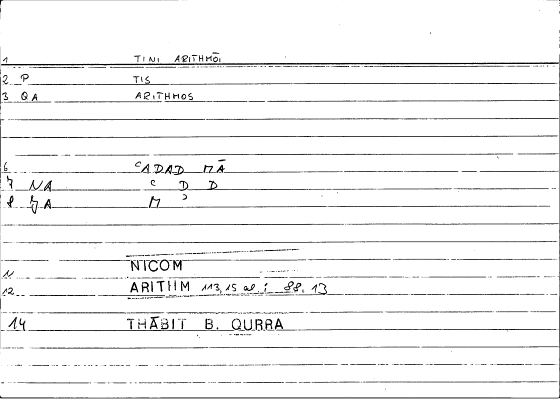 1 TINI ARITHMŌI
2 P TIS
3 QA ARITHMOS
6 ʿADAD MĀ
7 NA ʿ D D
8 YA M ʾ
11 NICOM
12 ARITHM 113,15 88.13
14 THĀBIT B. QURRA